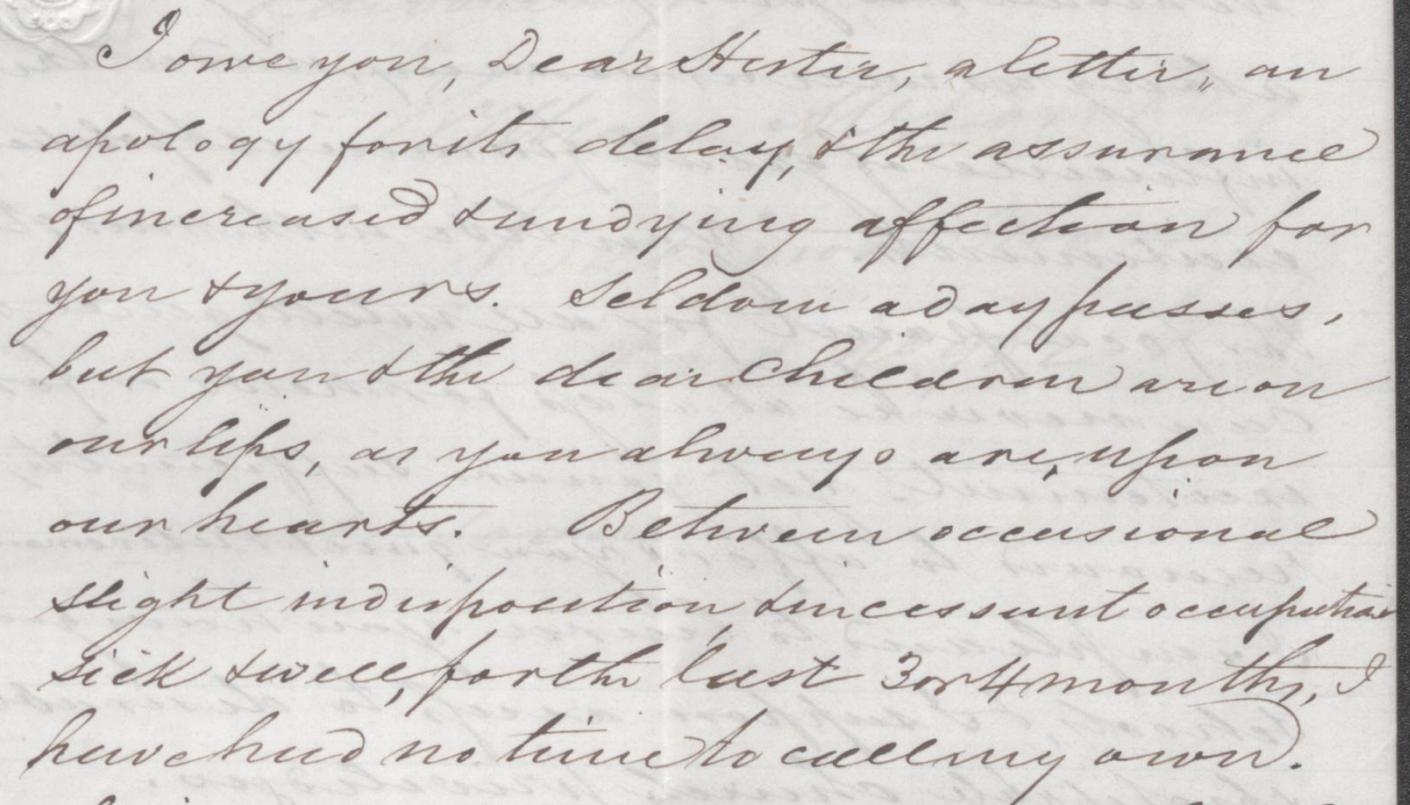 I owe you, Dear Hester, a letter, an
apology for its delay, & the assurance
of increased & undying affection for
you & yours. Seldom a day passes,
but you & the dear Children are on
our lips, as you always are, upon
our hearts. Between occasional
slight indisposition, & incessant occupation
sick & well, for the last 3 or 4 months, I
have had no time to call my own.